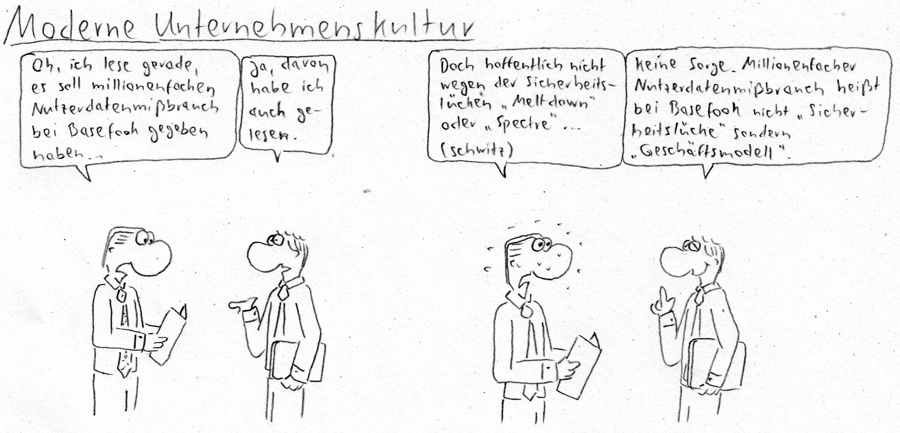 Moderne Unternehmenskultur
Oh, ich lese gerade,
es soll millionenfachen
Nutzerdatenmißbrauch
bei Basefook gegeben
haben...
Ja, davon
habe ich
auch ge-
lesen.
Doch hoffentlich nicht
wegen der Sicherheits-
lücken „Meltdown"
oder „Spectre"...
(schwitz)
Keine Sorge. Millionenfacher
Nutzerdatenmißbrauch heißt
bei Basefook nicht „Sicher-
heitslücke" sondern
„Geschäftsmodell".